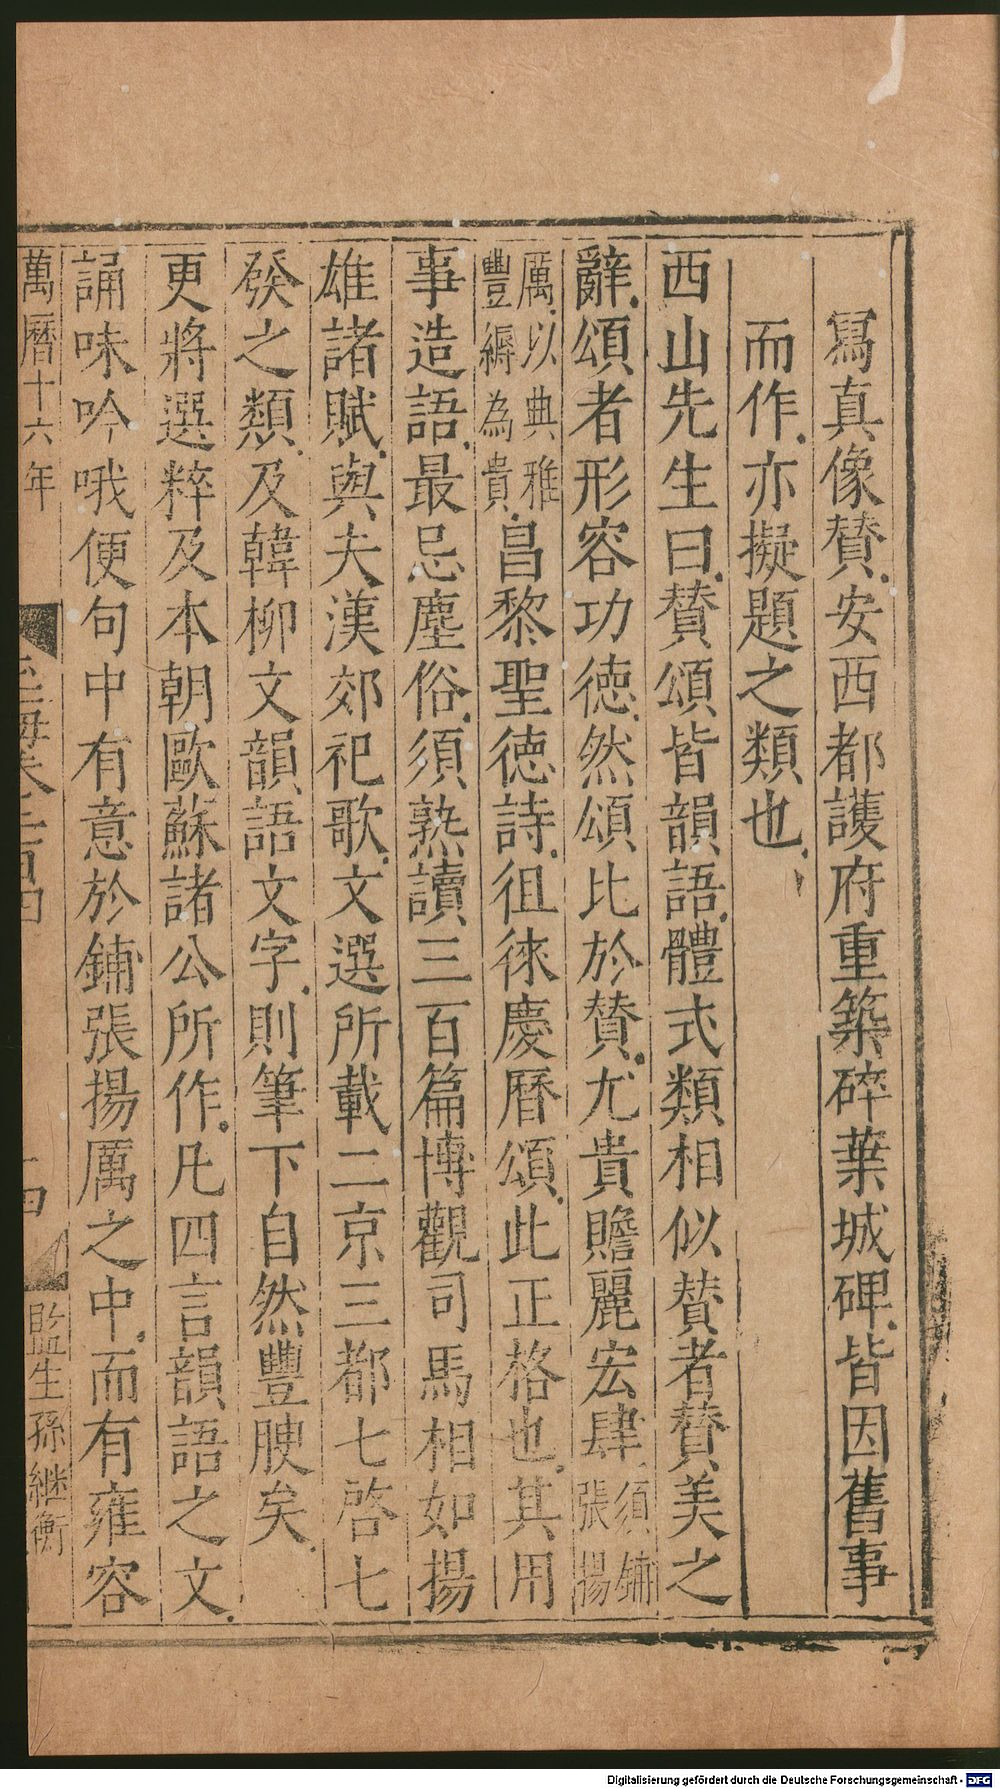 寫真像賛安西都護府重築碎葉城碑皆因舊事
而作亦擬題之類也
西山先生曰賛頌皆韻語體式類相似賛者賛美之
辭頌者形容功德然頌比於賛尤貴贍麗宏肆須鋪張揚
厲以典雅豐縟為貴昌黎聖德詩徂徠慶曆頌此正格也其用
事造語最忌塵俗須熟讀三百篇博觀司馬相如揚
雄諸賦與夫漢郊祀歌文選所載二京三都七啓七
發之類及韓柳文韻語文字則筆下自然豐腴矣
更將選粹及本朝歐蘇諸公所作凡四言韻語之文
誦味吟哦便句中有意於鋪張揚厲之中而有雍容
萬曆十六年
玉海卷二百四
十四
監生孫継衡
Digitalisierung gefördert durch die Deutsche Forschungsgemeinschaft - DFG